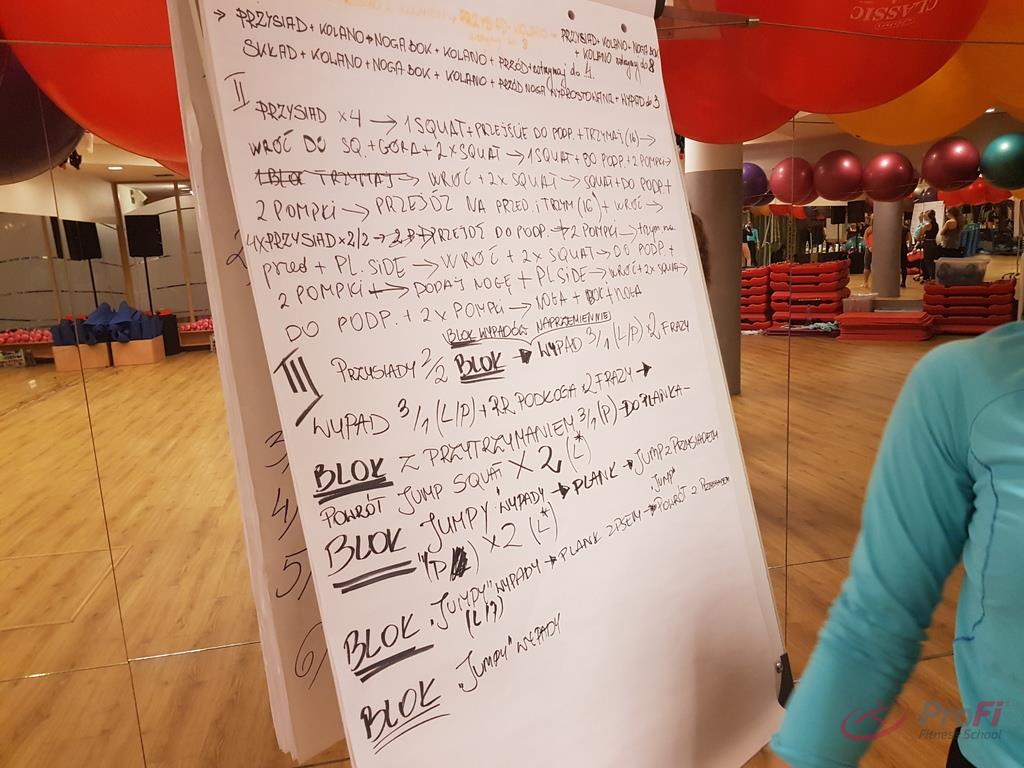 CLASSIC
→ PRZYSIAD + KOLANO → NOGA BOK + KOLANO → PRZYSIAD + KOLANO + NOGA BOK
+ KOLANO do 8
SKŁAD + KOLANO + NOGA BOK + KOLANO + PRZÓD NOGA WYPROSTOWANA + WYPAD do 3
II
PRZYSIAD x4 → 1 SQUAT + PRZEJŚCIE DO PODP. + TRZYMAJ (16) →
WRÓĆ DO SQ. + GÓRA + 2x SQUAT → 1 SQUAT + DO PODP. + 2 POMPKI →
WRÓĆ + 2x SQUAT → SQUAT + DO PODP. +
2 POMPKI → PRZEJDŹ NA PRZED. i TRZYM (16) + WRÓĆ →
4x PRZYSIAD x 2/2 → PRZEJDŹ DO PODP. → 2 POMPKI → trzym na
przed + PL. SIDE → WRÓĆ + 2x SQUAT → DO PODP. +
2 POMPKI → DODAJ NOGĘ + PL SIDE → WRÓĆ + 2x SQUAT →
DO PODP. + 2x POMPKI → NOGA + BOK + NOGA
BLOK WYPADÓW NAPRZEMIENNIE
III PRZYSIADY 2/2 BLOK → WYPAD 3/1 (L/P) x2 FRAZY
WYPAD 3/1 (L/P) + RR PODKOSA x2 FRAZY →
BLOK Z PRZYTRZYMANIEM 3/1 (P) → DO PLANKA -
POWRÓT JUMP SQUAT x2 (L*)
BLOK "JUMPY" WYPADY → PLANK → JUMP Z PRZYSIADEM
"(P) x2 (L*) "JUMP"
BLOK "JUMPY" WYPADY → PLANK Z PSEM → POWRÓT Z PRZYSIADEM
(L/P)
BLOK "JUMPY" WYPADY
3)
4)
5)
6)
ProFi
Fitness School